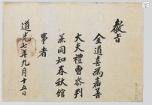 敎旨
金道喜爲嘉善
大夫禮曹參判
兼同知春秋館
事者
道光七年九月十五日